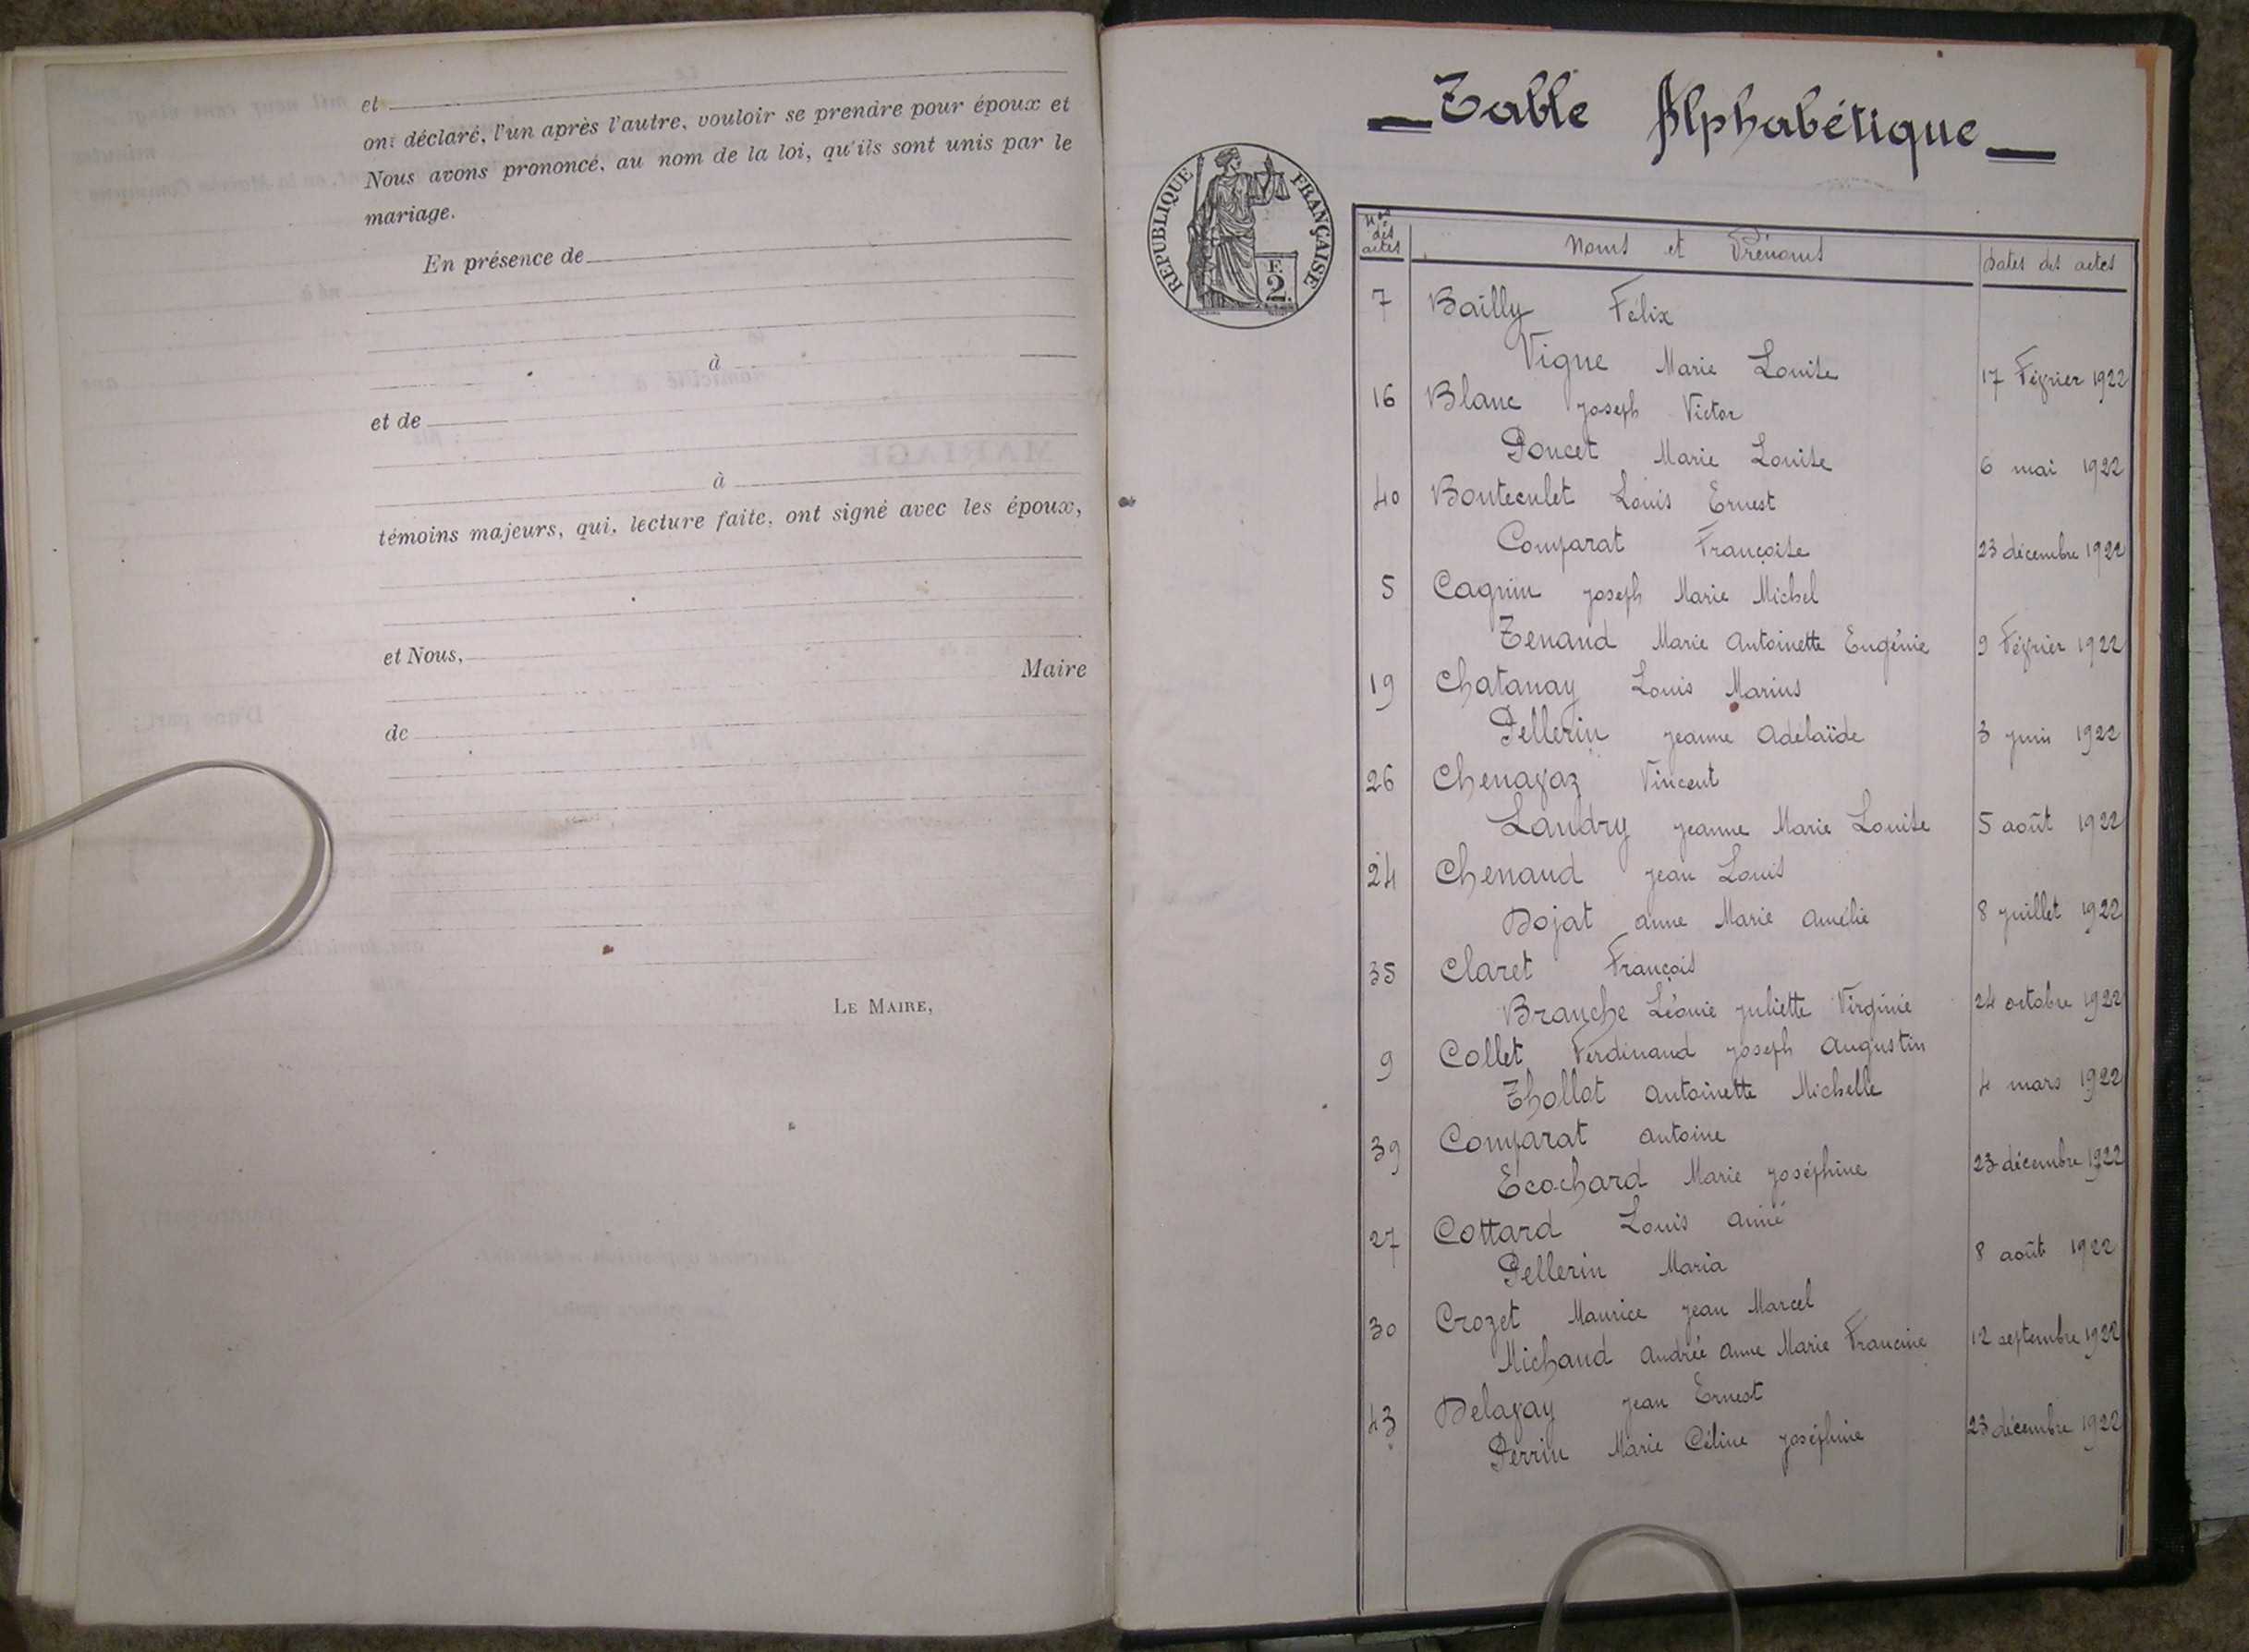 et
ont déclaré, l'un après l'autre, vouloir se prendre pour époux et
Nous avons prononcé, au nom de la loi, qu'ils sont unis par le
mariage.
En présence de
à
et de
à
témoins majeurs, qui, lecture faite, ont signé avec les époux,
et Nous,
Maire
de
LE MAIRE,
Table Alphabétique
RÉPUBLIQUE FRANÇAISE
F.
2.
Nos des actes Noms et Prénoms Dates des actes
7 Bailly Félix
Vigne Marie Louise 17 Février 1922
16 Blanc Joseph Victor
Poncet Marie Louise 6 mai 1922
40 Bonteculet Louis Ernest
Comparat Françoise 23 décembre 1922
5 Cagnin Joseph Marie Michel
Tenand Marie Antoinette Eugénie 9 Février 1922
19 Chatanay Louis Marius
Pellerin Jeanne Adélaïde 3 juin 1922
26 Chenavaz Vincent
Landry Jeanne Marie Louise 5 août 1922
24 Chenaud Jean Louis
Dojat Anne Marie Amélie 8 juillet 1922
35 Claret François
Branche Léonie Juliette Virginie 24 octobre 1922
9 Collet Ferdinand Joseph Augustin
Thollot Antoinette Michelle 4 mars 1922
39 Comparat Antoine
Ecochard Marie Joséphine 23 décembre 1922
27 Cottard Louis Aimé
Pellerin Maria 8 août 1922
30 Crozet Maurice Jean Marcel
Michaud Andrée Anne Marie Francine 12 septembre 1922
43 Delavay Jean Ernest
Perrin Marie Céline Joséphine 23 décembre 1922